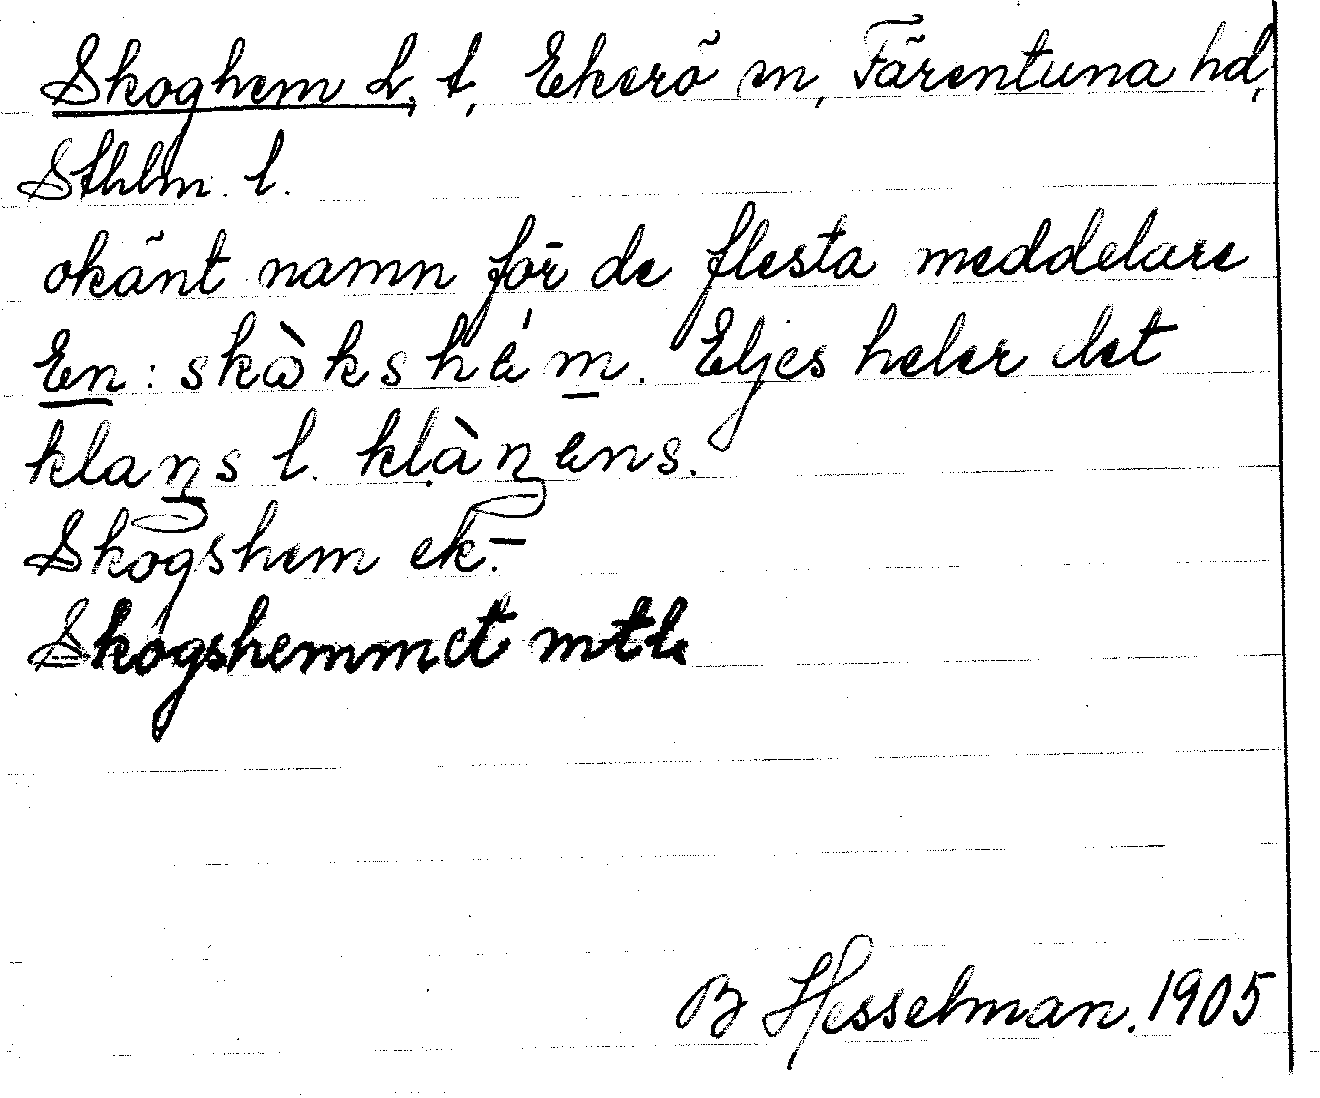 Skoghem L, t, Ekerö sn, Färentuna hd,
Sthlm. l.
okänt namn för de flesta meddelare
En: skὼkshém. Eljes heler det
klaŋs l. klàŋens.
Skogshem ek.–
Skogshemmet mtl.
B Hesselman. 1905